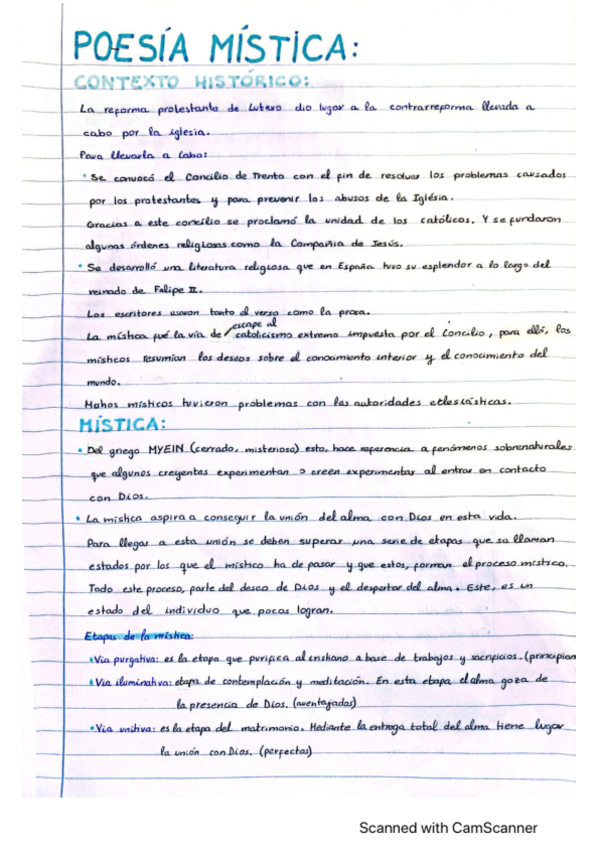 POESÍA MÍSTICA:
CONTEXTO HISTÓRICO:
La reforma protestante de Lutero dio lugar a la contrarreforma llevada a
cabo por la iglesia.
Para llevarla a cabo:
• Se convocó el Concilio de Trento con el fin de resolver los problemas causados
por los protestantes y para prevenir los abusos de la Iglésia.
Gracias a este concilio se proclamó la unidad de los católicos. Y se fundaron
algunas órdenes religiosas como la Compañia de Jesús.
• Se desarrolló una literatura religiosa que en España tuvo su esplendor a lo largo del
reinado de Felipe II.
Los escritores usaron tanto el verso como la prosa.
La mística fué la vía de / escape al catolicismo extremo impuesta por el Concilio, para ello, los
místicos resumían los deseos sobre el conocimiento interior y el conocimiento del
mundo.
Muchos místicos tuvieron problemas con las autoridades eclesiásticas.
MÍSTICA:
• Del griego MYEIN (cerrado, misterioso) esto, hace referencia a fenómenos sobrenaturales
que algunos creyentes experimentan o creen experimentar al entrar en contacto
con Dios.
• La mística aspira a conseguir la unión del alma con Dios en esta vida.
Para llegar a esta unión se deben superar una serie de etapas que se llaman
estados por los que el místico ha de pasar y que estos, forman el proceso místico.
Todo este proceso, parte del deseo de Dios y el despertar del alma. Este, es un
estado del individuo que pocos logran.
Etapas de la mística:
• Vía purgativa: es la etapa que purifica al cristiano a base de trabajos y sacrificios. (principian
• Vía iluminativa: etapa de contemplación y meditación. En esta etapa el alma goza de
la presencia de Dios. (aventajados)
• Vía unitiva: es la etapa del matrimonio. Mediante la entrega total del alma tiene lugar
la unión con Dios. (perfectos)
Scanned with CamScanner